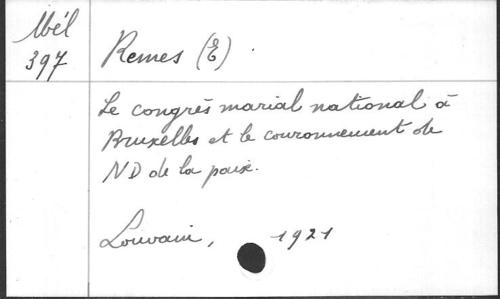 Mél
397
Remes (E).
Le congrès marial national à
Bruxelles et le couronnement de
ND de la paix.
Louvain, 1921